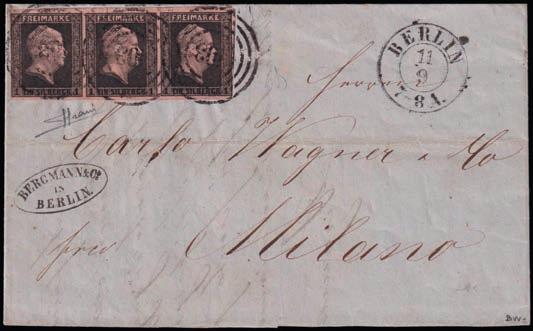 FREIMARKE FREIMARKE FREIMARKE
1 EIN SILBERGR. 1 1 EIN SILBERGR. 1 1 EIN SILBERGR. 1
BERLIN
11
9
7-8 A.
Herrn
Carlo Wagner & Co
BERGMANN & Co
IN
BERLIN.
Milano